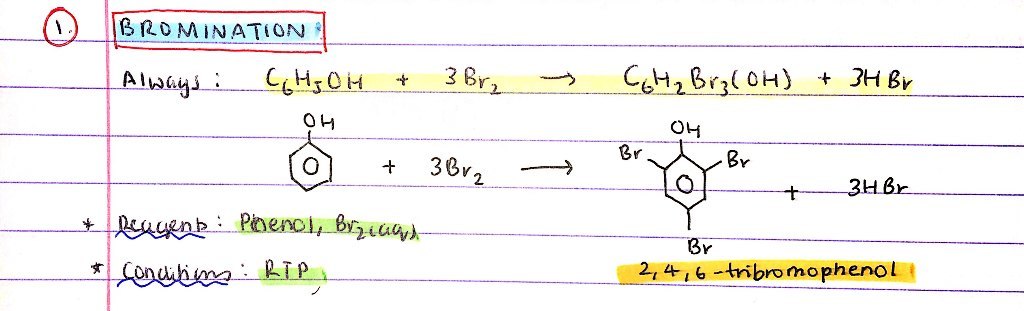 1. BROMINATION
Always : C₆H₅OH + 3Br₂ → C₆H₂Br₃(OH) + 3HBr
OH OH
Br Br
+ 3Br₂ → + 3HBr
* Reagents : Phenol, Br₂(aq)
Br
* Conditions : RTP,
2,4,6-tribromophenol